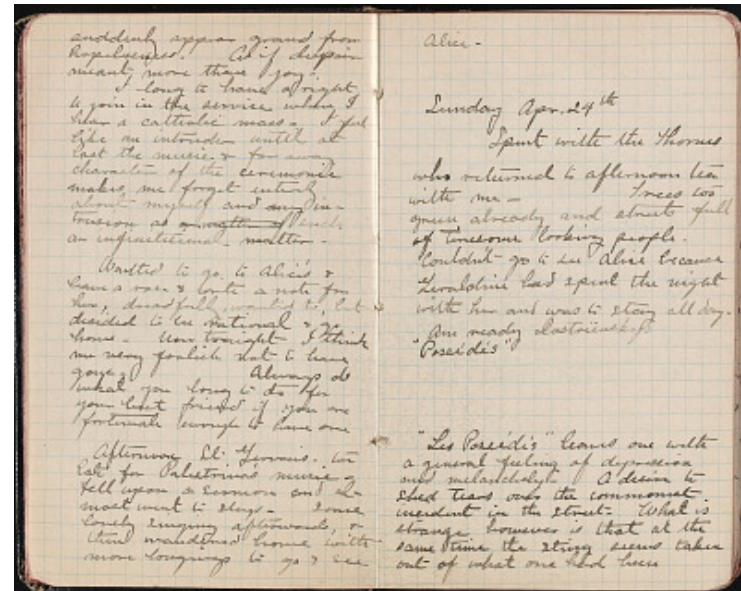 suddenly appear grand from
hopelessness. As if despair
meant more than joy.
I long to have a right
to join in the service when I
hear a catholic mass. I feel
like an intruder until at
last the music & far away
character of the ceremonie
makes me forget entirely
about myself and my in-
trusion at such
an matter.
Wanted to go to Alice's &
leave a rose & write a note for
her, dreadfully wanted to, but
decided to be rational & go
home. Now tonight I think
me very foolish not to have
gone. Always do
what you long to do for
your best friend if you are
fortunate enough to have one
Afternoon St. Gervais. to
for Palestrina's music -
fell upon a sermon and al-
most went to sleep. Some
lovely singing afterward, &
then wandered home with
more longings to go & see
Alice -
Sunday Apr. 24th
Spent with the Thornes
who returned to afternoon tea
with me - Trees too
green already and streets full
of tiresome looking people.
Couldn't go to see Alice because
Geraldine had spent the night
with her and was to stay all day.
Am reading
"Possédés"
"Les Possédés" leaves one with
a general feeling of depression
and melancholy. A desire to
shed tears over the commonest
incident in the street. What is
strange however is that at the
same time the sting seems taken
out of what one had been